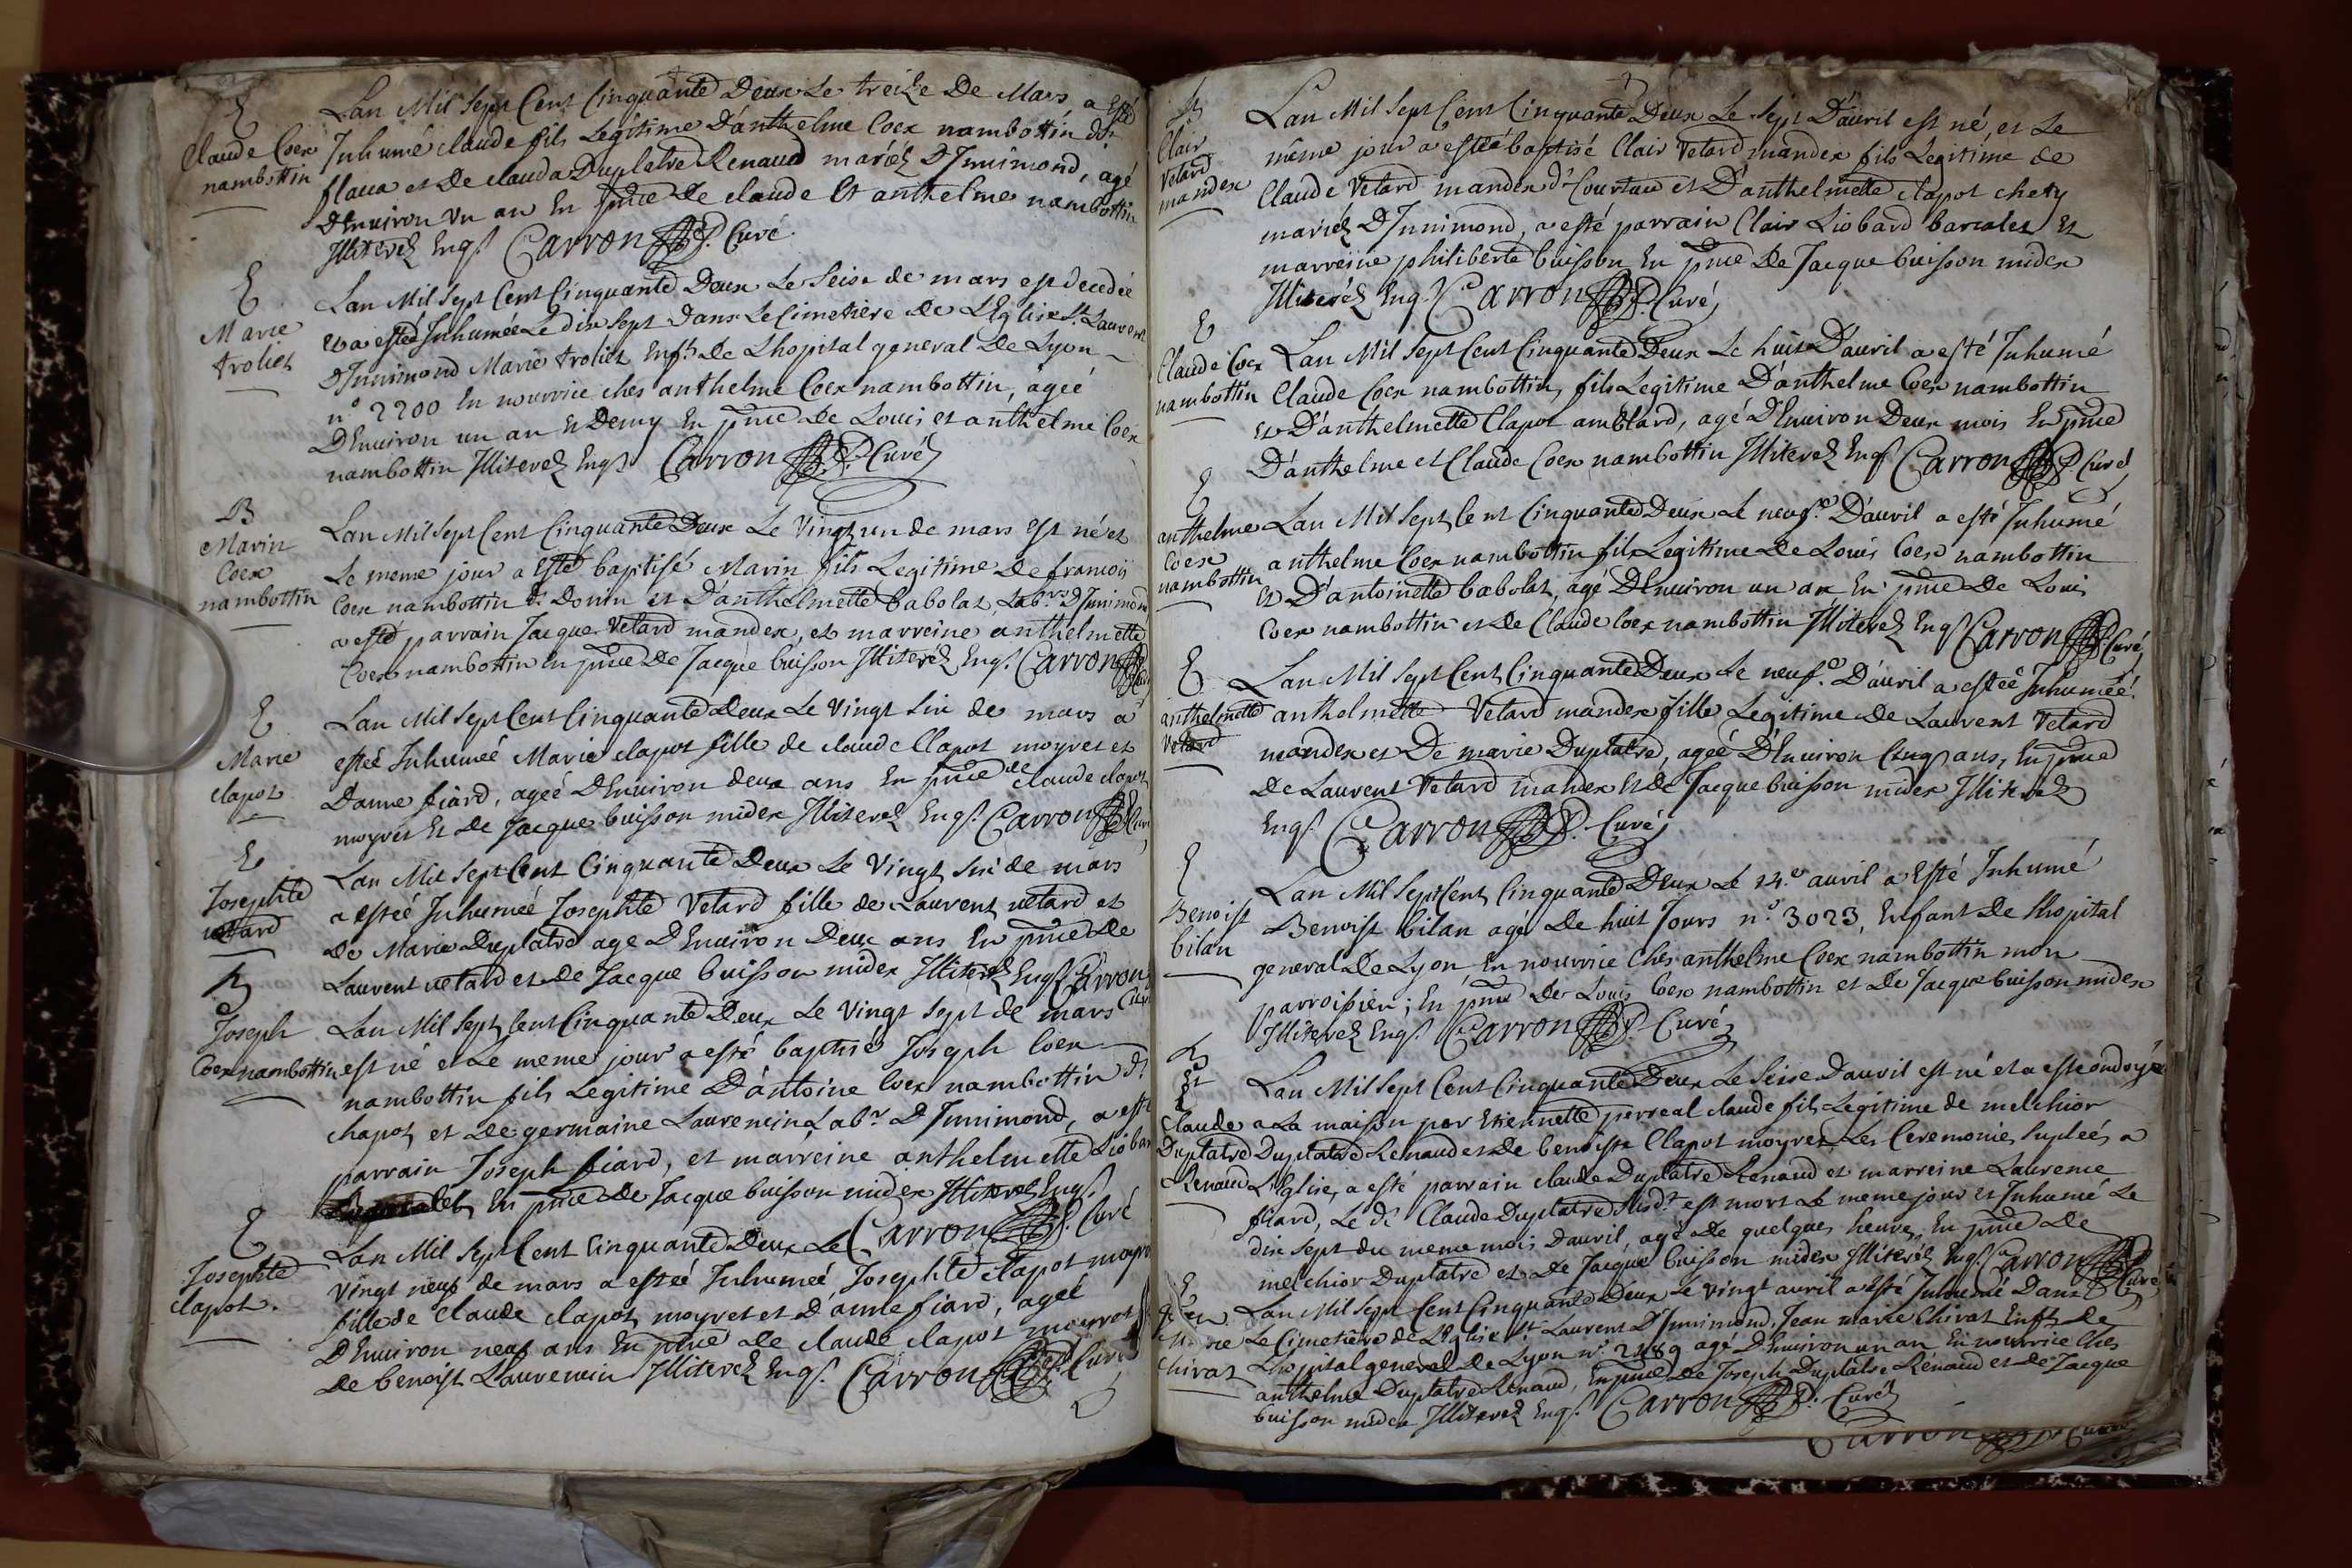 E
Claude Coex
nambottin
Lan Mil Sept Cent Cinquante Deux Le treize De Mars a Esté
Inhumé claude fils Legitime D'anthelme Coex nambottin dt
flaua et De clauda Duplatre Renaud mariéz D'Innimond, agé
D'Enuiron Vn an En pnce De claude Et anthelme nambottin
Illiterez Enqs Carron P. Curé
E
Marie
troliet
Lan Mil Sept Cent Cinquante Deux Le Seise de mars est decedée
et a estée Inhumée Le dix sept Dans Le Cimetiere De L'Eglise St Laurent
D'Innimond Marie troliet Enft De Lhopital general De Lyon
n° 2200 En nourrice ches anthelme Coex nambottin, ageé
D'Enuiron un an Et Demy En pnce De Louis et anthelme Coex
nambottin Illiterez Enqs Carron P. Curé
B
Marin
Coex
nambottin
Lan Mil Sept Cent Cinquante Deux Le Vingt un de mars Est né et
Le meme jour a Esté baptisé Marin fils Legitime De francois
Coex nambottin dt Donin et D'anthelmette babolat, Labrs D'Innimond
a esté parrain Jacque Vetard mandex, et marreine anthelmette
Coex nambottin En pnce De Jacque buisson Illiteréz Enqs. Carron P.
E
Marie
clapot
Lan Mil Sept Cent Cinquante Deux Le Vingt Six de mars a
estée Inhumeé Marie clapot fille de claude Clapot moyret et
Danne fiard, ageé D'Enuiron deux ans En pnce de claude clapot
moyret Et de Jacque buisson midex Illiterez Enqs. Carron P. Curé
E
Josephte
vetard
Lan Mil Sept Cent Cinquante Deux Le Vingt Six de mars
a esteé Inhumeé Josephte Vetard fille de Laurent vetard et
De Marie Duplatre age D'Enuiron Deux ans En pnce De
Laurent vetard et de Jacque buisson midex Illiterez Enqs Carron
Curé
B
Joseph
Coex nambottin
Lan Mil Sept Cent Cinquante Deux Le Vingt Sept de mars
est né et Le meme jour a esté baptisé Joseph Coex
nambottin fils Legitime D'antoine Coex nambottin dt
chapot, et de germaine Laurencin Labrs D'Innimond, a esté
parrain Joseph fiard, et marreine anthelmette Liobar
En pnce De Jacque buisson midex Illiterez Enqs.
Carron P. Curé
E
Josephte
clapot.
Lan Mil Sept Cent Cinquante Deux Le
Vingt neuf de mars a esteé Inhumeé Josephte clapot moyret
fille de Claude clapot moyret et d'anne fiard, ageé
D'Enuiron neuf ans En pnce de claude clapot moyret
De benoist Laurencin Illiterez Enqs. Carron P. Curé
B
Clair
Vetard
mandex
Lan Mil Sept Cent Cinquante Deux Le Sept D'auril est né, et Le
même jour a esté baptisé Clair Vetard mandex fils Legitime de
Claude Vetard mandex dt Courtau et D'anthelmette clapot chety
mariéz D'Innimond, a esté parrain Clair Liobard barcalet Et
marreine philiberte buisson En pnce De Jacque buisson midex
Illiteréz Enqs Carron P. Curé
E
Claude Coex
nambottin
Lan Mil Sept Cent Cinquante Deux Le huit D'auril a esté Inhumé
Claude Coex nambottin, fils Legitime D'anthelme Coex nambottin
Et D'anthelmette Clapot amblard, agé D'Enuiron Deux mois En pnce
D'anthelme et Claude Coex nambottin Illiterez Enqs Carron P. Curé
E
anthelme
Coex
nambottin
Lan Mil Sept Cent Cinquante Deux Le neufe D'auril a esté Inhumé
anthelme Coex nambottin fils Legitime De Louis Coex nambottin
Et D'antoinette babolat, agé D'Enuiron un an En pnce De Louis
Coex nambottin et De Claude Coex nambottin Illiterez Enqs Carron P. Curé
E
anthelmette
Vetard
Lan Mil Sept Cent Cinquante Deux Le neufe. D'auril a esteé Inhumeé
anthelmette Vetard mandex fille Legitime De Laurent Vetard
mandex et De marie Duplatre, ageé D'Enuiron Cinq ans, En pnce
De Laurent Vetard mandex Et de Jacque buisson midex Illiterez
Enqs. Carron P. Curé
E
Benoist
bilan
Lan Mil Sept Cent Cinquante Deux Le 14.e auril a Esté Inhumé
Benoist bilan agé De huit Jours n° 3023, Enfant De Lhopital
general De Lyon En nourrice Ches anthelme Coex nambottin mon
parroissien; En pnce De Louis Coex nambottin et De Jacque buisson midex
Illiterez Enqs. Carron P. Curé
B
Et
E
Claude
Duplatre
Renaud
Lan Mil Sept Cent Cinquante Deux Le Seise D'auril est né et a esté ondoyé
a La maison par Etiennette perreal claude fils Legitime de melchior
Duplatre Renaud et de benoiste Clapot moyret Les Ceremonies Supleés a
L'Eglise, a esté parrain claude Duplatre Renaud et marreine Laurence
fiard, Le dt Claude Duplatre Susdt est mort Le meme jour et Inhumé Le
dix Sept du meme mois D'auril, agé De quelques heures, En pnce De
melchior Duplatre et De Jacque buisson midex Illiterés Enqs. Carron P.
Curé
E
Jean
Marie
Chirat
Lan Mil Sept Cent Cinquante Deux Le vingt auril a esté Inhumé Dans
Le Cimetiere de L'Eglise St Laurent D'Innimond, Jean marie Chirat Enft De
Lhopital general De Lyon n° 2489 agé D'Enuiron un an En nourrice Ches
anthelme Duplatre Renaud, En pnce De Joseph Duplatre Renaud et de Jacque
buisson midex Illiterez Enqs. Carron P. Curé
Carron P. Curé